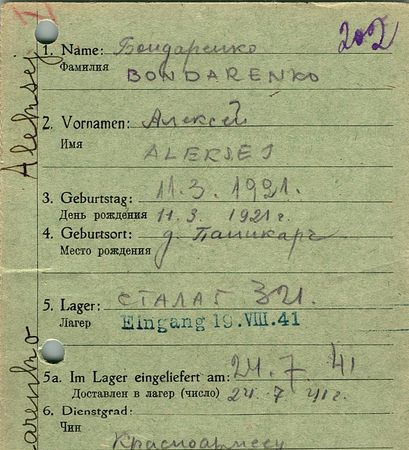 202
1. Name: Бондаренко
Фамилия BONDARENKO
2. Vornamen: Алексей
Имя ALEKSEJ
3. Geburtstag: 11.3.1921.
День рождения 11.3. 1921 г.
4. Geburtsort: д.
Место рождения
5. Lager: СТАЛАГ 321.
Лагер Eingang 19.VIII.41
5a. Im Lager eingeliefert am: 24.7 41
Доставлен в лагер (число) 24.7 41 г.
6. Dienstgrad:
Чин Красноармеец
Aleksej